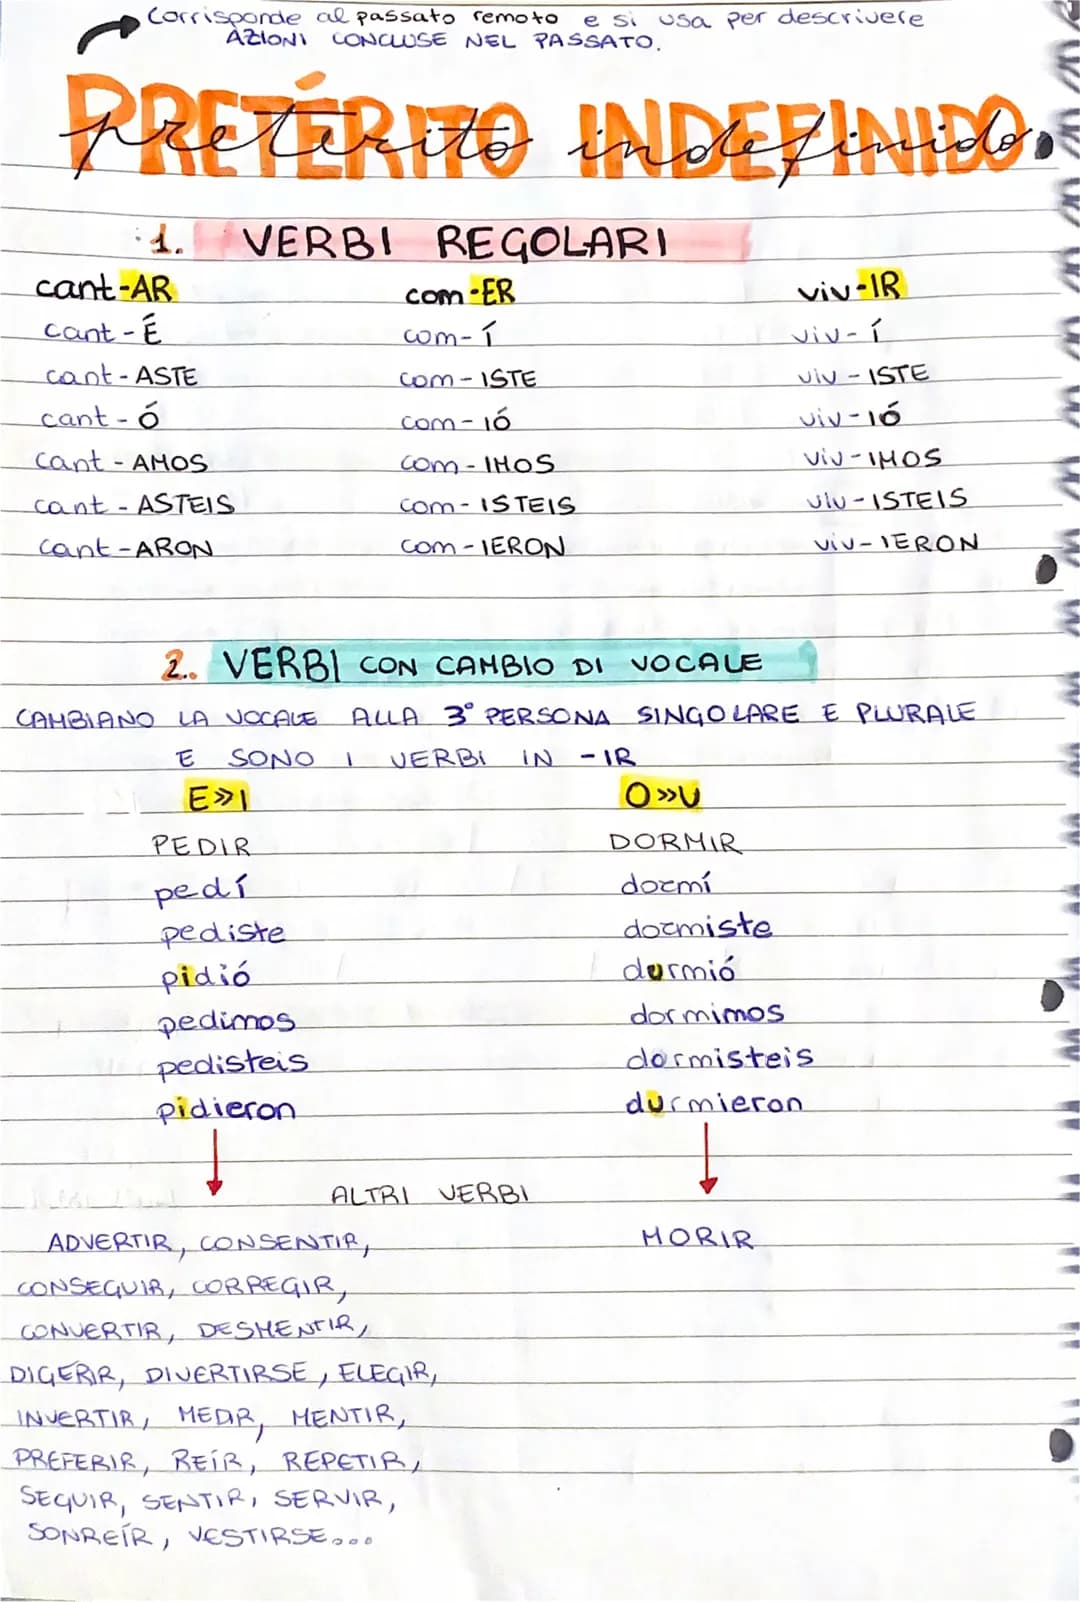 Corrisponde al passato remoto e si usa per descrivere
AZIONI CONCLUSE NEL PASSATO.
PRETÉRITO INDEFINIDO
preterito indefinido.
1. VERBI REGOLARI
cant-AR com-ER viv-IR
cant-É com-Í viv-Í
cant-ASTE com-ISTE viv-ISTE
cant-Ó com-IÓ viv-IÓ
cant-AMOS com-IMOS viv-IMOS
cant-ASTEIS com-ISTEIS viv-ISTEIS
cant-ARON com-IERON viv-IERON
2. VERBI CON CAMBIO DI VOCALE
CAMBIANO LA VOCALE ALLA 3° PERSONA SINGOLARE E PLURALE
E SONO I VERBI IN -IR
E»I O»U
PEDIR DORMIR
pedí dormí
pediste dormiste
pidió durmió
pedimos dormimos
pedisteis dormisteis
pidieron durmieron
ALTRI VERBI
ADVERTIR, CONSENTIR, MORIR
CONSEGUIR, CORREGIR,
CONVERTIR, DESMENTIR,
DIGERIR, DIVERTIRSE, ELEGIR,
INVERTIR, MEDIR, MENTIR,
PREFERIR, REÍR, REPETIR,
SEGUIR, SENTIR, SERVIR,
SONREÍR, VESTIRSE...